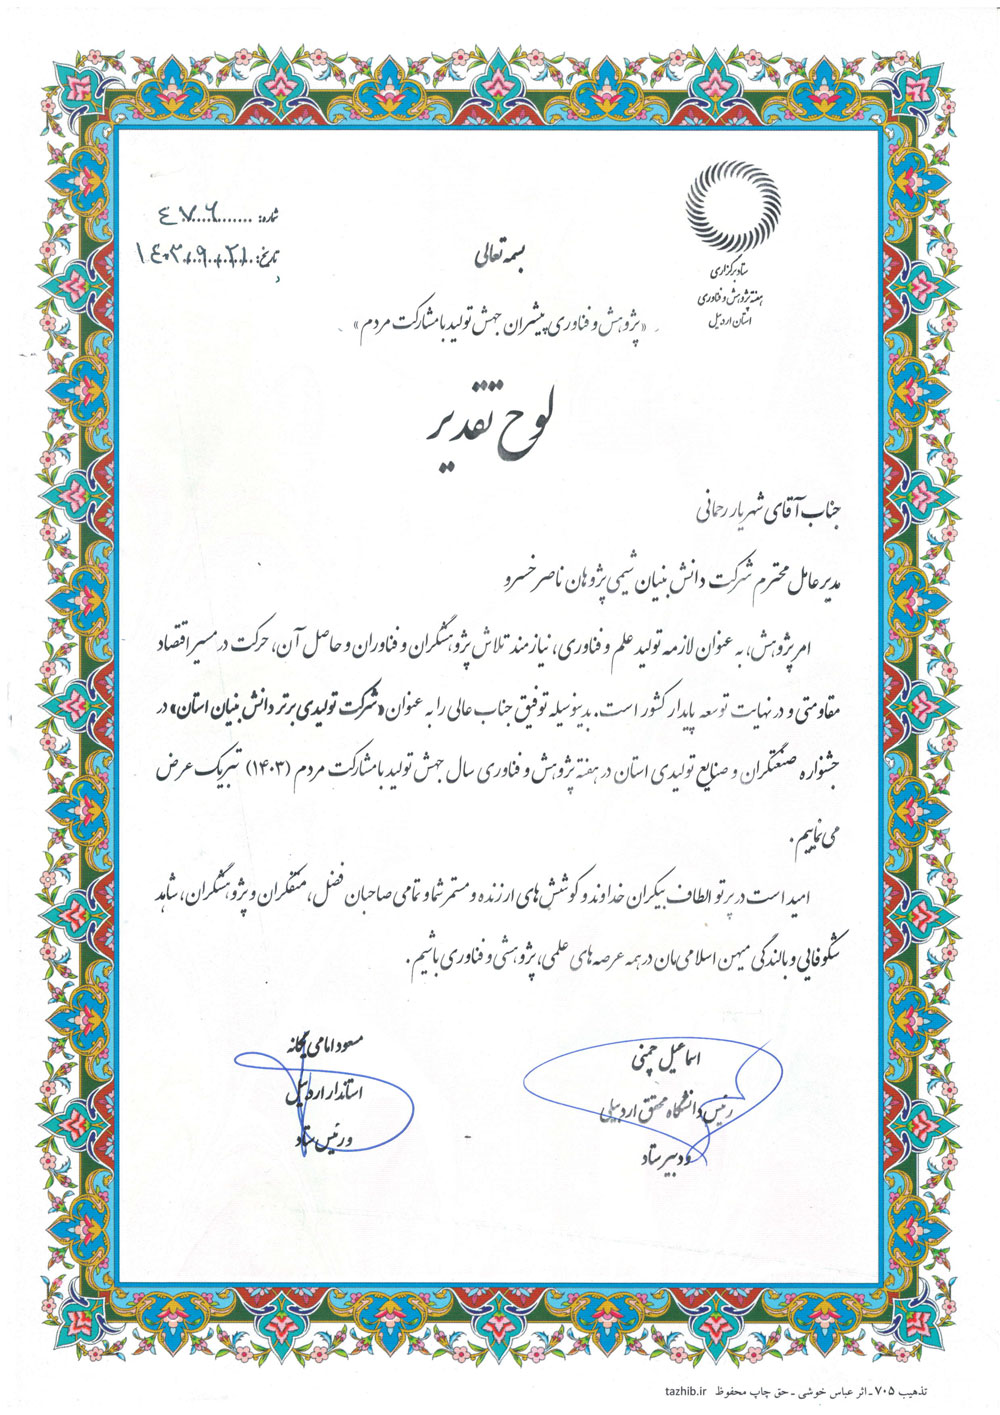 ستاد برگزاری
هفته پژوهش و فناوری
استان اردبیل
شماره: ۴۷۰۶
تاریخ: ۱۴۰۳،۹،۲۱
بسمه تعالی
«پژوهش و فناوری پیشران جهش تولید با مشارکت مردم»
لوح تقدیر
جناب آقای شهریار رحمانی
مدیر عامل محترم شرکت دانش بنیان شیمی پژوهان ناصر خسرو
امر پژوهش، به عنوان لازمه تولید علم و فناوری، نیازمند تلاش پژوهشگران و فناوران و حاصل آن، حرکت در مسیر اقتصاد
مقاومتی و در نهایت توسعه پایدار کشور است. بدینوسیله توفیق جناب عالی را به عنوان «شرکت تولیدی برتر دانش بنیان استان» در
جشنواره صنعتگران و صنایع تولیدی استان در هفته پژوهش و فناوری سال جهش تولید با مشارکت مردم (۱۴۰۳) تبریک عرض
می نماییم.
امید است در پرتو الطاف بیکران خداوند و کوشش های ارزنده و مستمر شما و تمامی صاحبان فضل، متفکران و پژوهشگران، شاهد
شکوفایی و بالندگی میهن اسلامی مان در همه عرصه های علمی، پژوهشی و فناوری باشیم.
اسماعیل چمنی
رئیس دانشگاه محقق اردبیلی
و دبیر ستاد
مسعود امامی یگانه
استاندار اردبیل
و رئیس ستاد
تذهیب ۷۰۵ - اثر عباس خوشی - حق چاپ محفوظ tazhib.ir